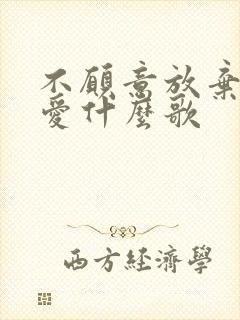 不願意放棄
愛什麼歌
西方經濟學